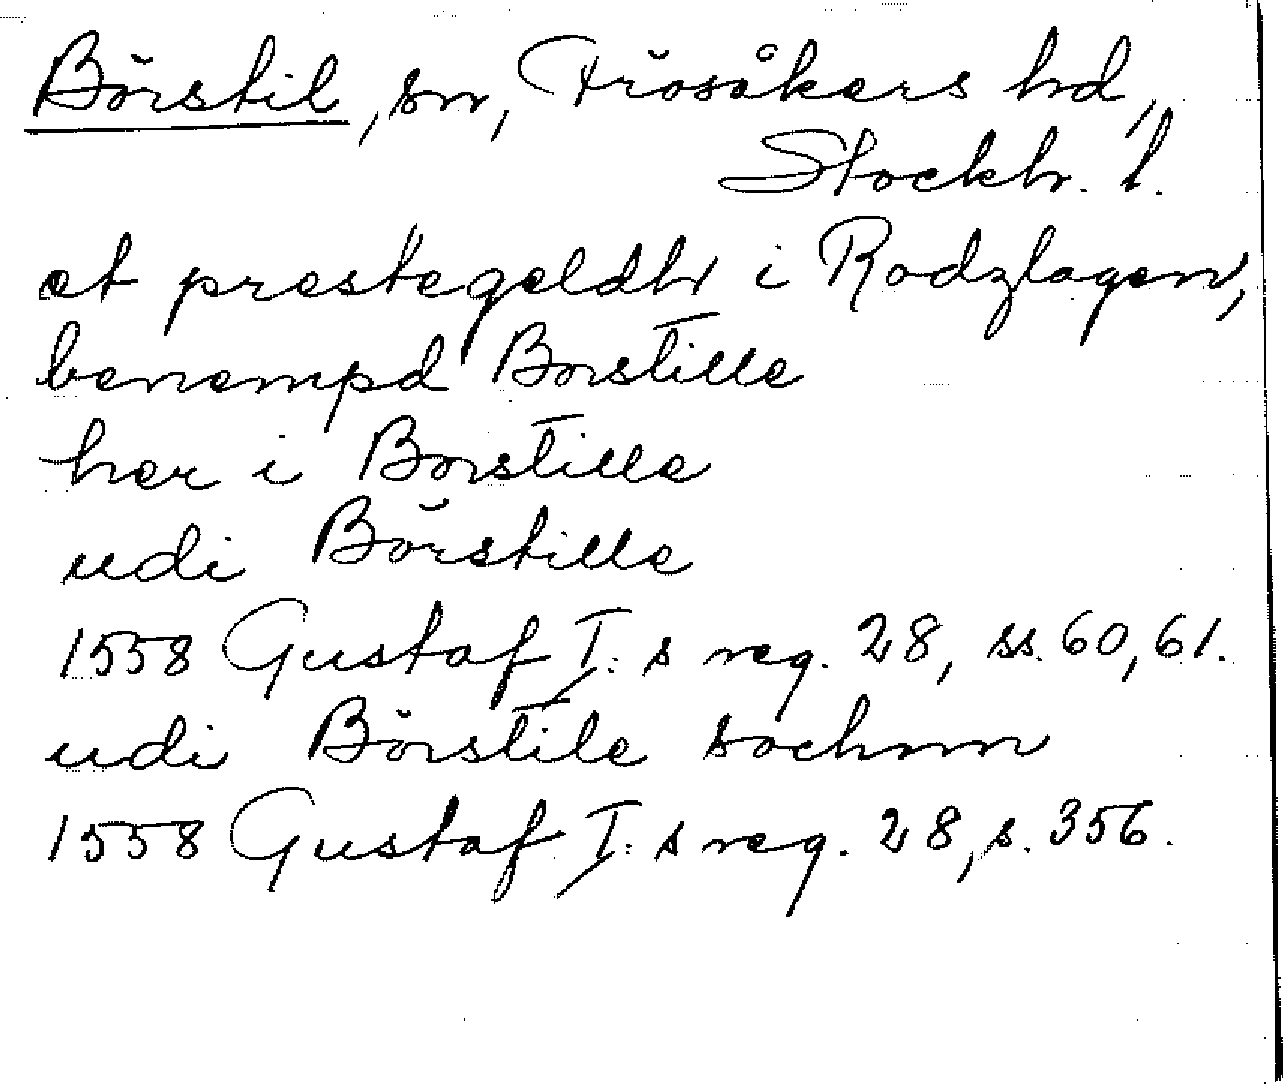 Börstil, sn, Frösåkers hd,
Stockh. l.
et prestegeldh i Rodzlagen,
benempd Borstille
her i Borstille
udi Börstille
1558 Gustaf I:s reg. 28, ss. 60, 61.
udi Börstile sochnn
1558 Gustaf I:s reg. 28, s. 356.